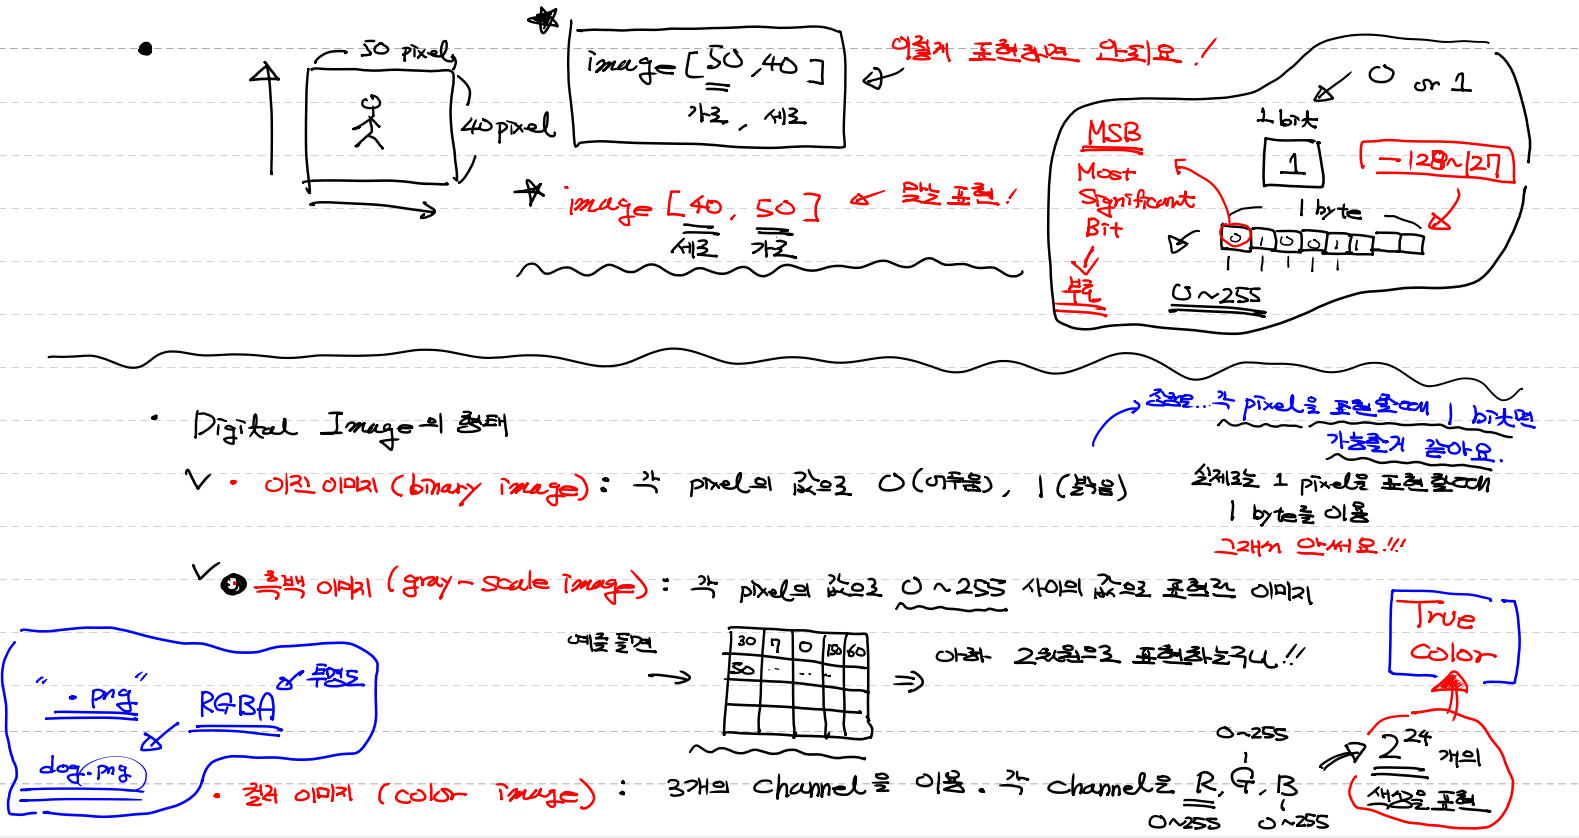 50 pixel
40 pixel
image [50, 40]
가로, 세로
이렇게 표현하면 안되요!
image [40, 50]
세로 가로
맞는 표현!
0 or 1
1 bit
1
-128~127
MSB
Most
Significant
Bit
부호
1 byte
0 1 0 0 1 1
0 ~ 255
Digital Image의 형태
이진 이미지 (binary image) : 각 pixel의 값으로 0 (어두움), 1 (밝음)
각 pixel을 표현할때 1 bit면
가능할거 같아요.
실제로는 1 pixel을 표현할때
1 byte를 이용
그래서 안써요!!!
흑백 이미지 (gray-scale image) : 각 pixel의 값으로 0 ~ 255 사이의 값으로 표현한 이미지
예를 들면
30 7 0 150 60
50 .. .. ..
⇒ 아하 2차원으로 표현하는구나!!
True
Color
" .png "
RGBA
투명도
dog.png
컬러 이미지 (color image) : 3개의 channel을 이용. 각 channel은 R, G, B
0~255
0~255
0~255
2^24 개의
색상을 표현